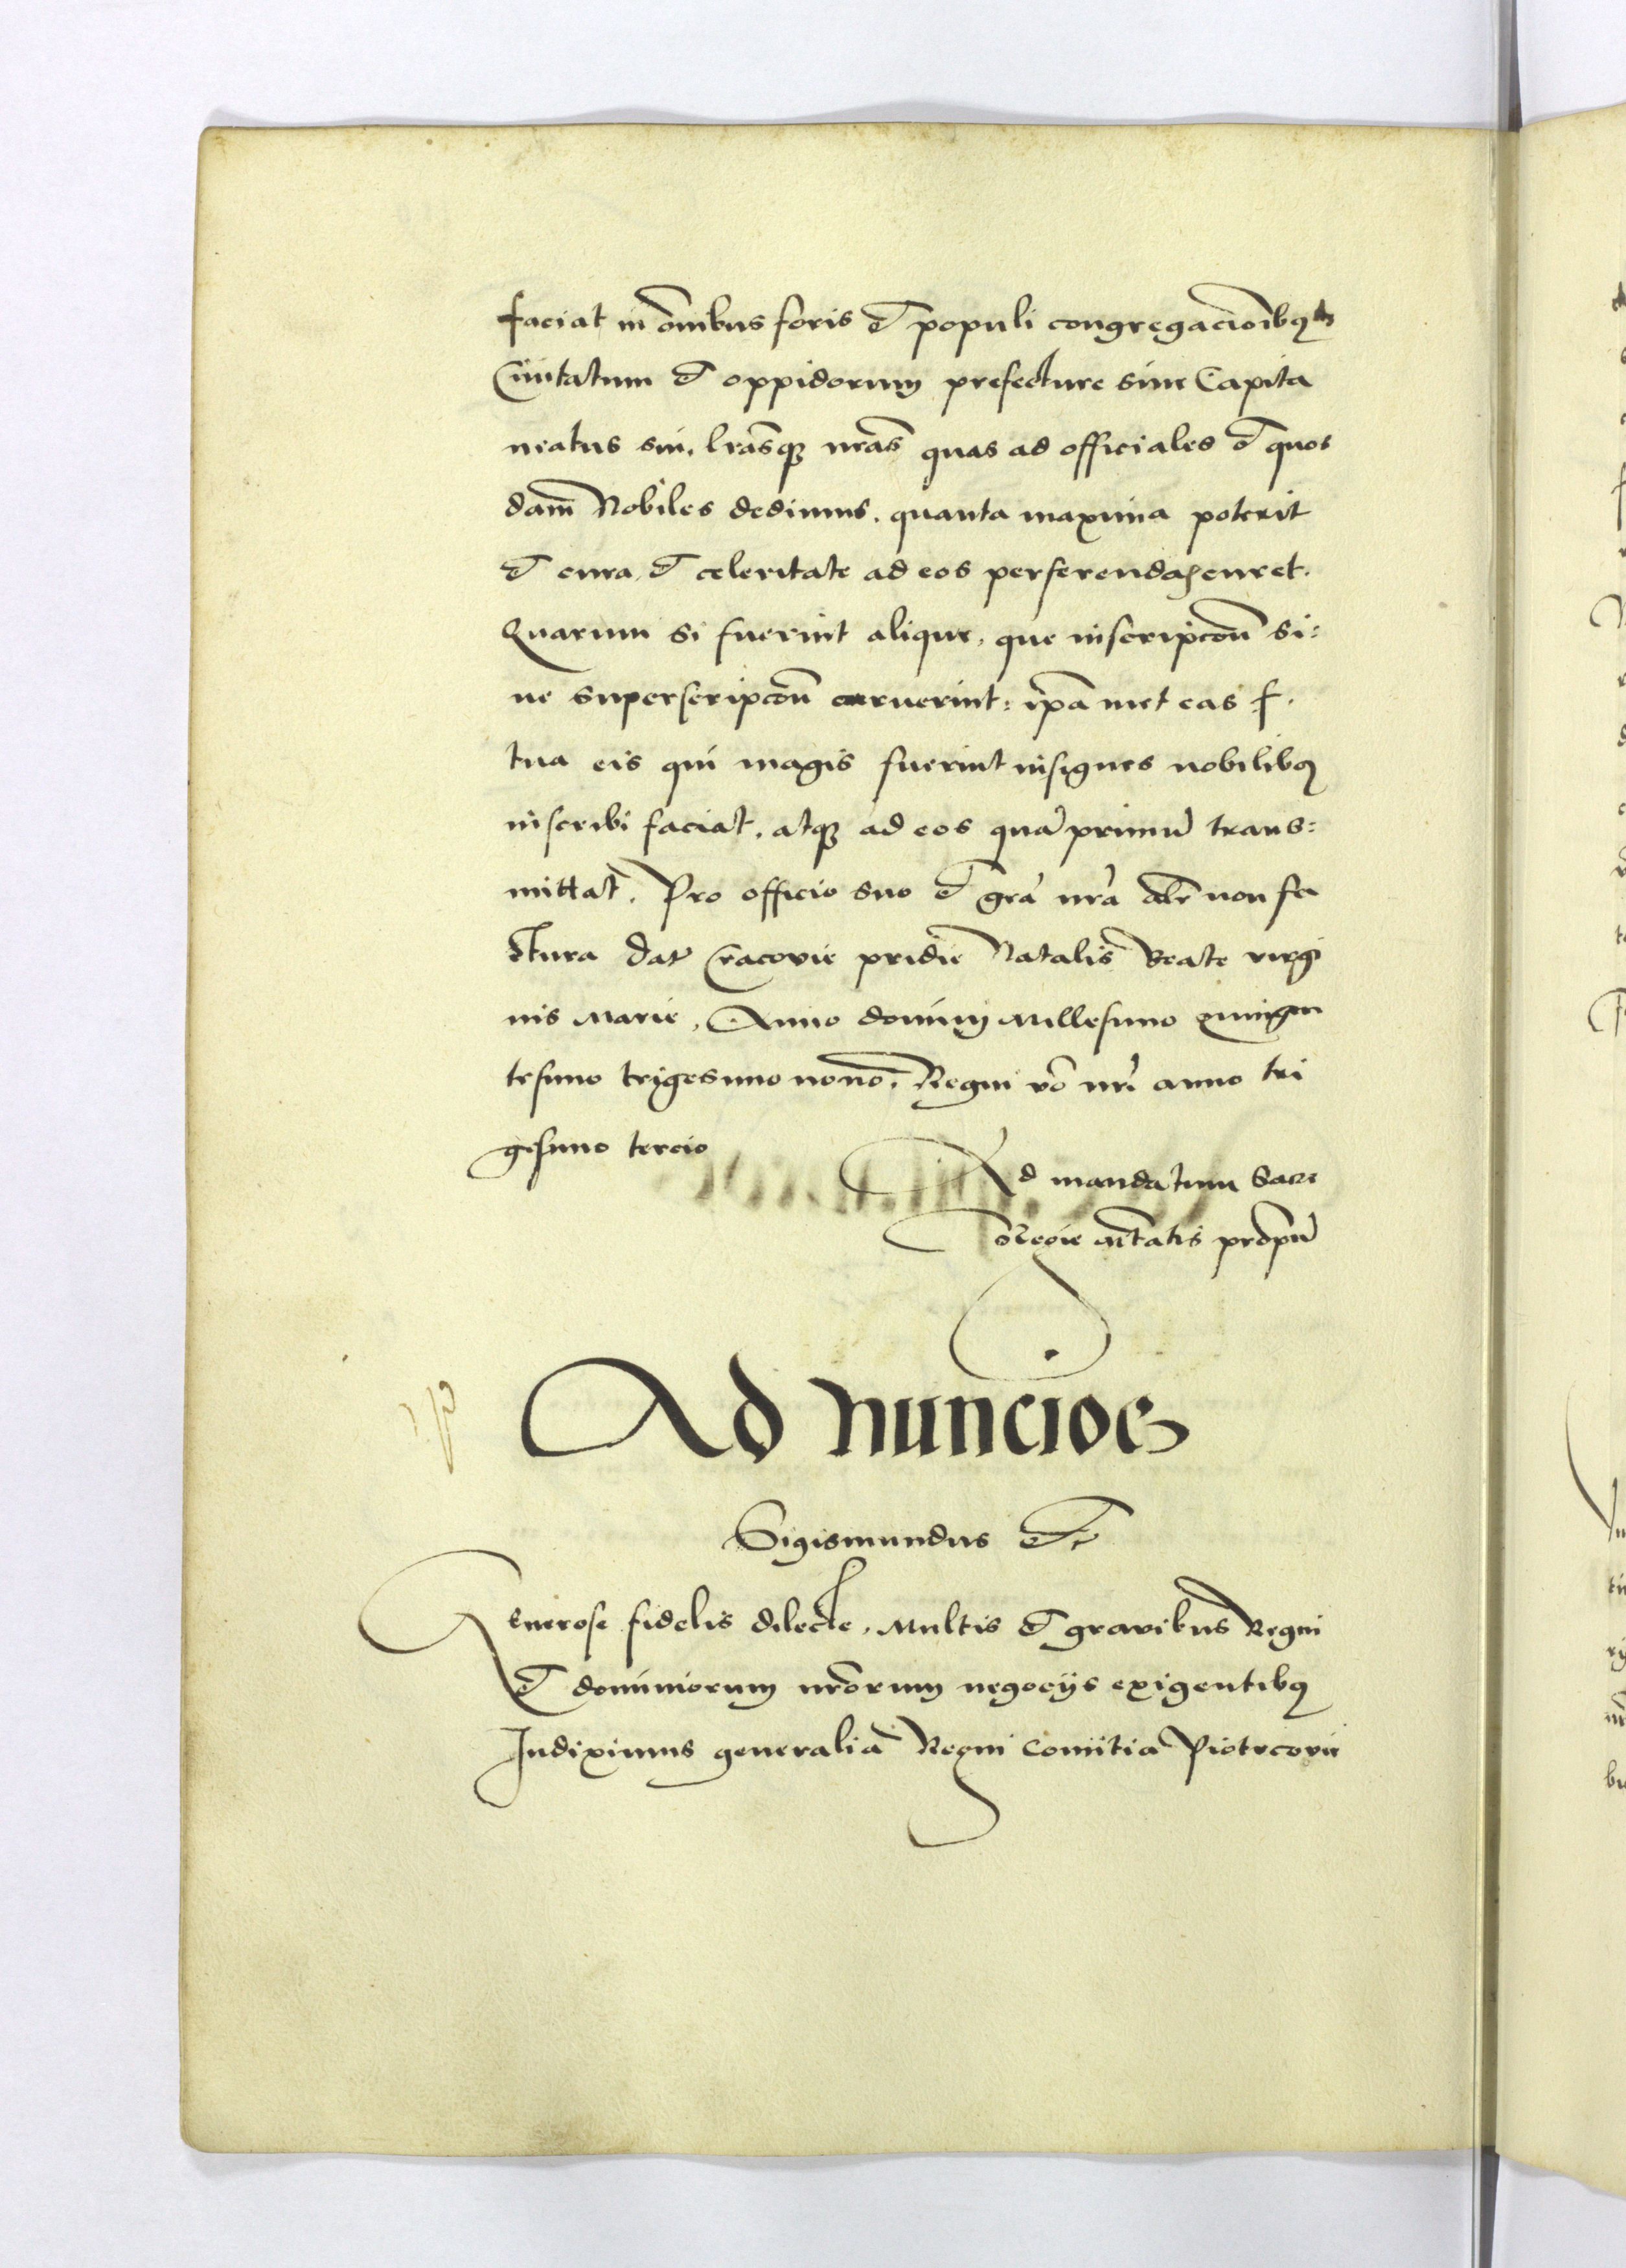 faciat in om̃ibus foris et populi congregacionibqз
Ciuitatum et oppidorum prefecture siue Capita
neatus sui, lr̃asqз nr̃as quas ad officiales et quos
dam̃ Nobiles dedimus, quanta maxima poterit
et cura, et celeritate ad eos perferendas curet.
Quarum si fuerint alique, que inscripcõn si:
ue superscripcõn caruerint: ip̃a met eas f.
tua eis qui magis fuerint insignes nobilibꝫ
inscribi faciat, atqз ad eos quã primũ trans:
mittat, Pro officio suo et grã nr̃a alr̃ non fa
ctura dat̃ Cracovie pridie Natalis Beate virgi
nis Marie, Anno domini Millesimo quingen
tesimo trigesimo nono, Regni vo nr̃i anno tri
gesimo tercio
Ad mandatum Sacre
Regie Mtatis propriũ
Ad nuncios
Sigismundus etc
Generose fidelis dilecte, Multis et gravibus Regni
et dominiorum nr̃orum negocijs exigentibꝫ
Indiximus generalia Regni Comitia Piotrcovie